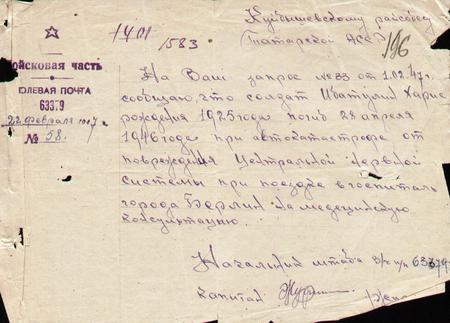 Куйбышевскому райсобесу
Татарской АССР
1401
1583
196
Войсковая часть
ПОЛЕВАЯ ПОЧТА
63379
22 февраля 1947 г
№ 58.
На Ваш запрос № 83 от 1.02.47г.
сообщаю, что солдат
рождения 1925 года погиб 28 апреля
1946 года при автокатастрофе от
повреждения Центральной нервной
системы при поездке в госпиталь
города Берлин на медецинскую
консультацию.
Начальник штаба в/ч п/п 63379
капитан